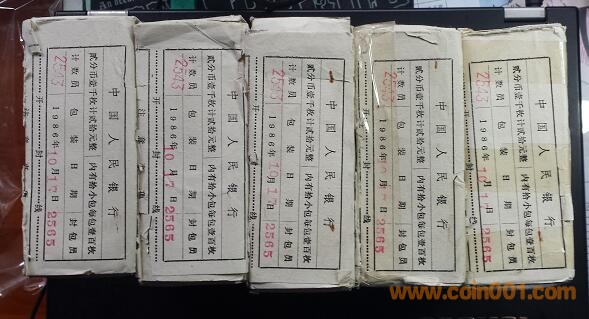 中国人民银行
贰分币壹千枚计贰拾元整 内有拾小包每包壹百枚
计数员 包装日期 封包员
2543 1986年10月17日 2565
开封线
中国人民银行
贰分币壹千枚计贰拾元整 内有拾小包每包壹百枚
计数员 包装日期 封包员
2543 1986年10月17日 2565
开封线
中国人民银行
贰分币壹千枚计贰拾元整 内有拾小包每包壹百枚
计数员 包装日期 封包员
2543 1986年10月17日 2565
开封线
中国人民银行
贰分币壹千枚计贰拾元整 内有拾小包每包壹百枚
计数员 包装日期 封包员
2543 1986年10月17日 2565
开封线
中国人民银行
贰分币壹千枚计贰拾元整 内有拾小包每包壹百枚
计数员 包装日期 封包员
2543 1986年10月17日 2565
开封线
www.coin001.com